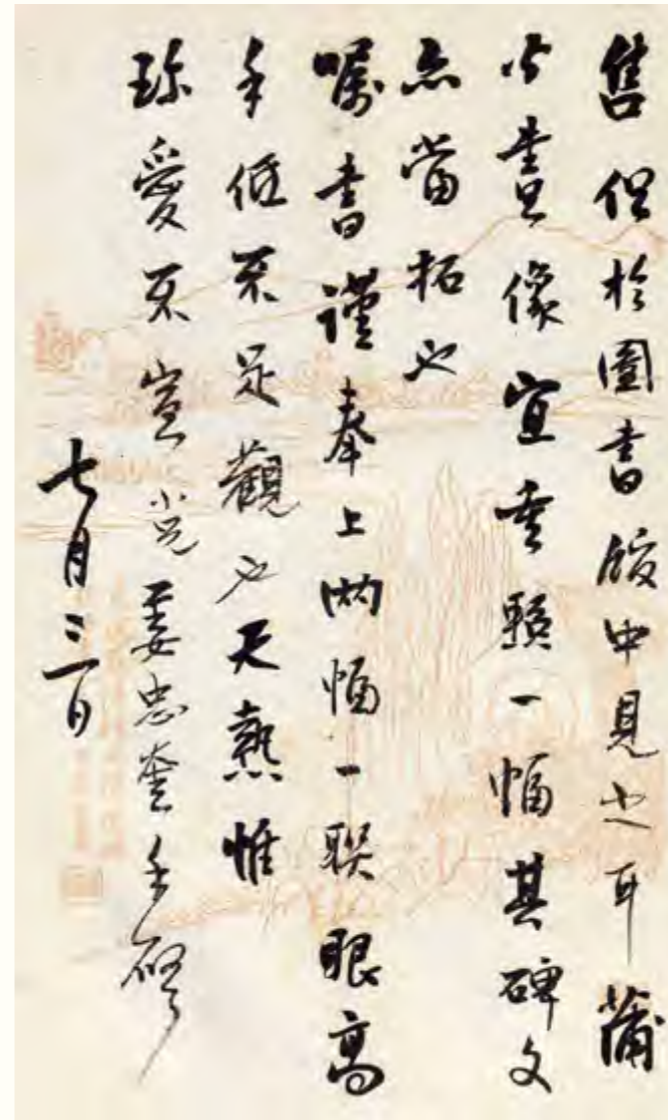 售但於圖書館中見之耳蒲
公畫像宜重照一幅其碑文
亦當拓也
囑書謹奉上兩幅一聯眼高
手低不足觀也天熱惟
珍愛不宣 小兄姜忠奎手啓
七月三日